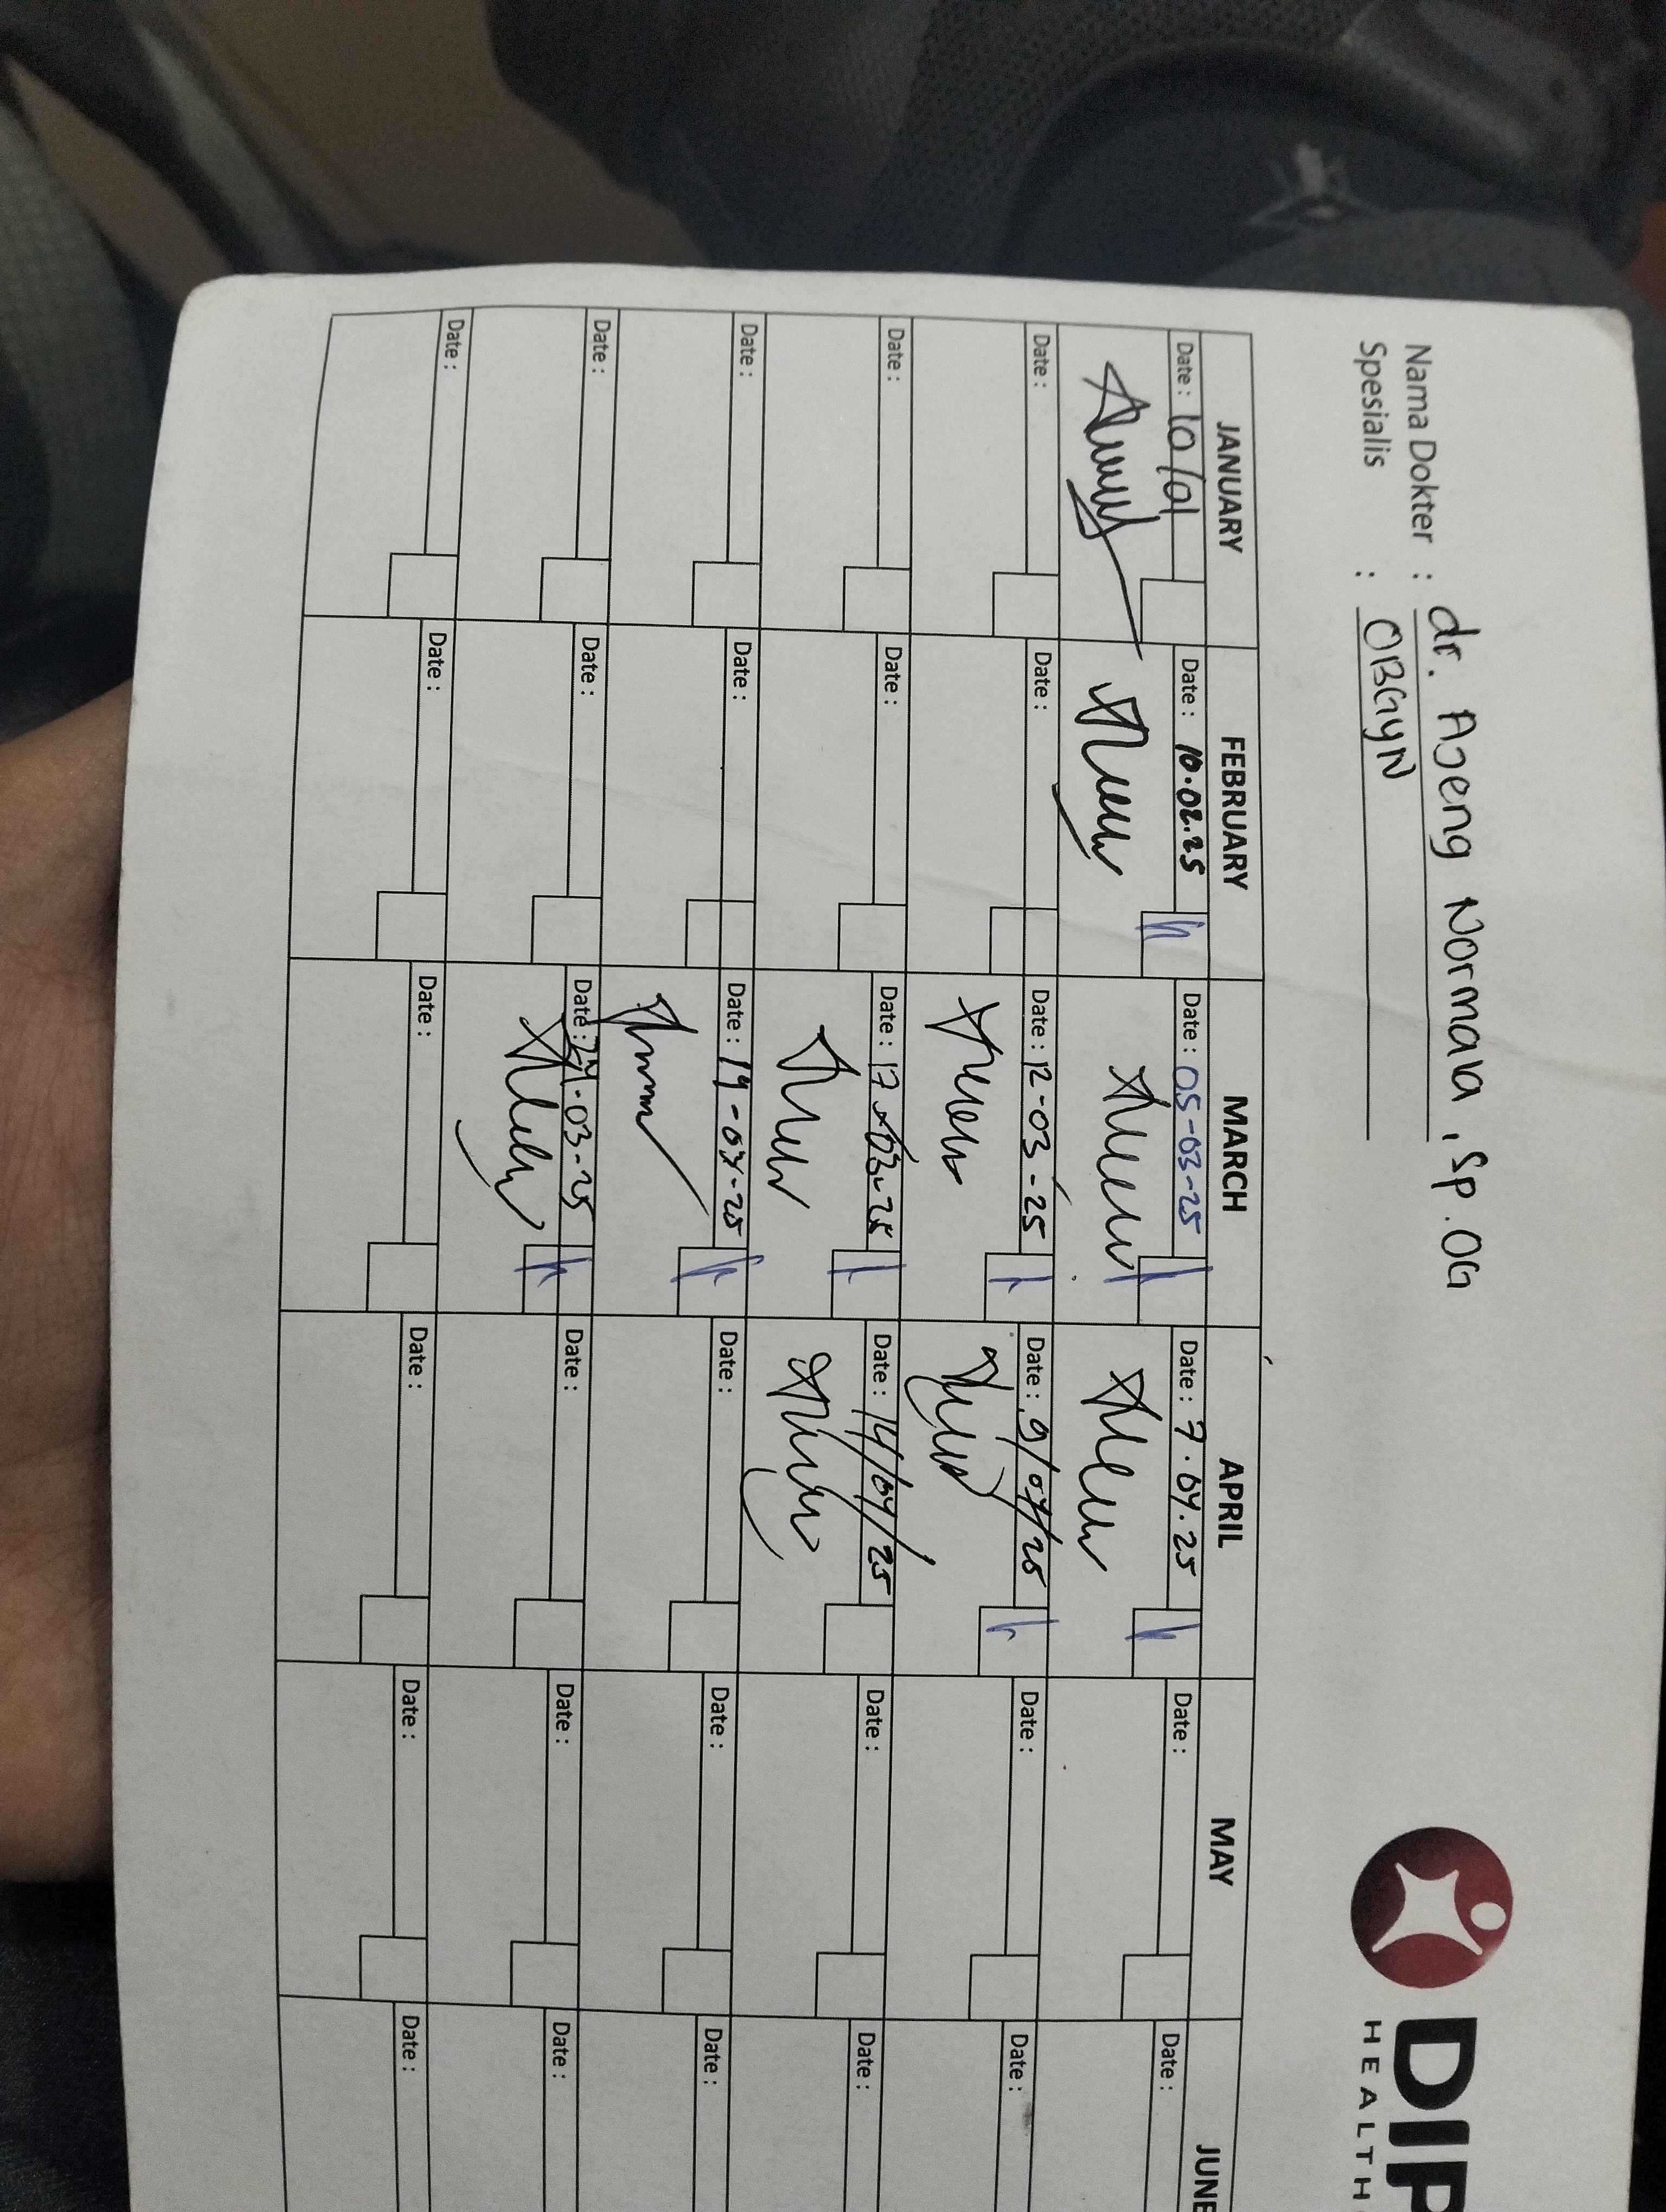 Nama Dokter : dr. Ajeng Normala, Sp.OG
Spesialis : OBGYN
DIP
HEALTH
JANUARY FEBRUARY MARCH APRIL MAY JUNE
Date : 10/01 Date : 10.02.25 Date : 05-03-25 Date : 7.04.25 Date : Date :
Date : Date : Date : 12-03-25 Date : 9/04/25 Date : Date :
Date : Date : Date : 17-03-25 Date : 14/04/25 Date : Date :
Date : Date : Date : 19-03-25 Date : Date : Date :
Date : Date : Date : 24-03-25 Date : Date : Date :
Date : Date : Date : Date : Date : Date :